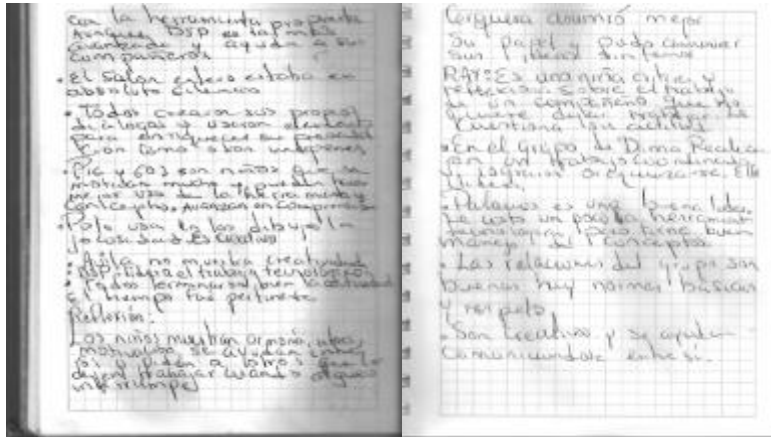 con la herramienta propuesta
Aunque DSP es la más
avanzada y ayuda a sus
compañeros
• El salon entero estaba en
absoluto silencio
• Todos crearon sus propios
dialogos y usaron elementos
para enriquecer su presenta
cion como son imágenes
• Pic y 603 son niños que se
motivan mucho y pueden hacer
mejor uso de la herramienta y
concepto. Avanzan en compromiso
• Polo usa en los dibujos la
es creativo
• Avila no muestra creatividad
• DSP lidera el trabajo tecnologico
• Todos terminaron bien la actividad
el tiempo fue pertinente
Reflexión:
Los niños muestran armonía,
motivacion se ayudan entre
si y piden a otros que lo
dejen trabajar cuando alguien
interrumpe
asumió mejor
su papel y pudo comunicar
sus ideas sin temor
RAY: Es una niña critica y
reflexiona sobre el trabajo
de un compañero que no
quiere dejar trabajar
cuestiona su actitud
• En el grupo de Dima Realiza
ron un trabajo coordinado
y lograron organizarse. Ella
lidera.
• Palacios es una buena lider
le costo un poco la herramienta
tecnologica pero tiene buen
manejo del concepto
• Las relaciones del grupo son
buenas hay normas basicas
y respeto
• Son creativos y se ayudan
comunicandose entre si.